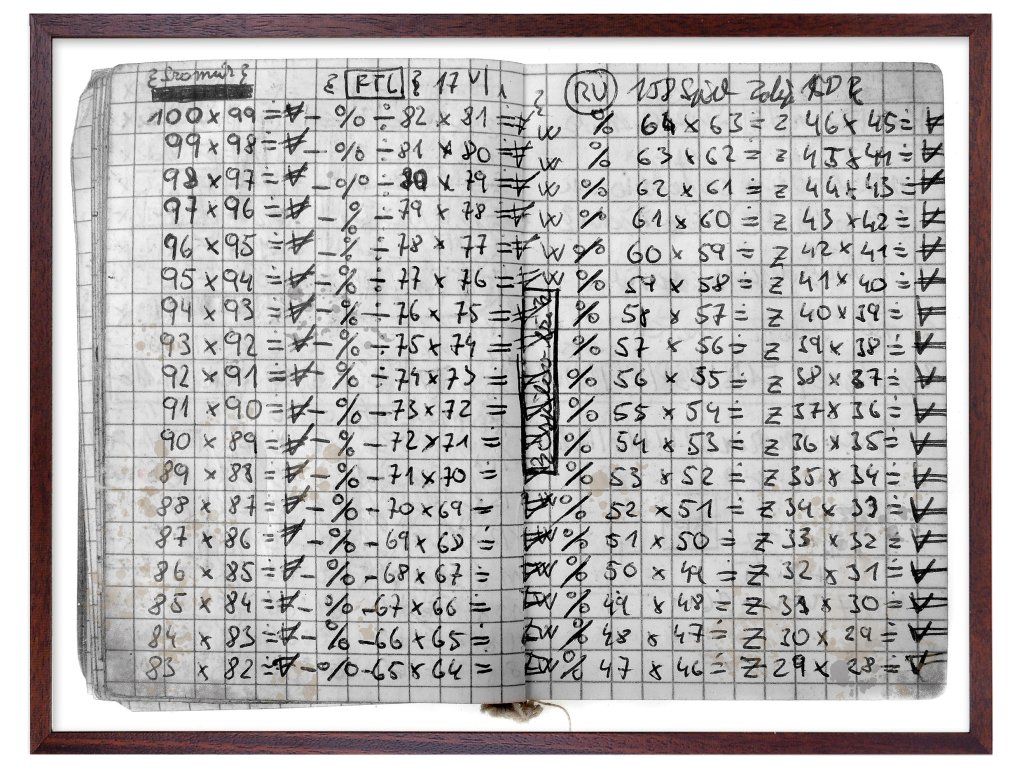 RTL 17 VI
100 x 99 ≑ ∀ - % ÷ 82 x 81 ≑
99 x 98 ≑ ∀ - % ÷ 81 x 80 ≑
98 x 97 ≑ ∀ - % ÷ 80 x 79 ≑
97 x 96 ≑ ∀ - % ÷ 79 x 78 ≑
96 x 95 ≑ ∀ - % ÷ 78 x 77 ≑
95 x 94 ≑ ∀ - % ÷ 77 x 76 =
94 x 93 ≑ ∀ - % ÷ 76 x 75 =
93 x 92 ≑ ∀ - % ÷ 75 x 74 =
92 x 91 ≑ ∀ - % ÷ 74 x 73 =
91 x 90 = ∀ - % - 73 x 72 =
90 x 89 = ∀ - % - 72 x 71 =
89 x 88 = ∀ - % - 71 x 70 =
88 x 87 ≑ ∀ - % - 70 x 69 =
87 x 86 ≑ ∀ - % - 69 x 68 ≑
86 x 85 ≑ ∀ - % - 68 x 67 ≑
85 x 84 ≑ ∀ - % - 67 x 66 =
84 x 83 ≑ ∀ - % - 66 x 65 ≑
83 x 82 ≑ ∀ - % - 65 x 64 =
RU 158
W % 64 x 63 ≑ z 46 x 45 ≑ ∀
W % 63 x 62 ≑ z 45 x 44 ≑ ∀
W % 62 x 61 ≑ z 44 x 43 ≑ ∀
W % 61 x 60 ≑ z 43 x 42 ≑ ∀
W % 60 x 59 ≑ z 42 x 41 ≑ ∀
W % 59 x 58 ≑ z 41 x 40 ≑ ∀
% 58 x 57 ≑ z 40 x 39 ≑ ∀
% 57 x 56 = z 39 x 38 ≑ ∀
% 56 x 55 ≑ z 38 x 37 ≑ ∀
% 55 x 54 ≑ z 37 x 36 ≑ ∀
% 54 x 53 ≑ z 36 x 35 ≑ ∀
% 53 x 52 ≑ z 35 x 34 ≑ ∀
% 52 x 51 ≑ z 34 x 33 ≑ ∀
W % 51 x 50 ≑ z 33 x 32 ≑ ∀
W % 50 x 49 ≑ z 32 x 31 ≑ ∀
W % 49 x 48 ≑ z 31 x 30 ≑ ∀
W % 48 x 47 ≑ z 30 x 29 ≑ ∀
W % 47 x 46 ≑ z 29 x 28 ≑ ∀